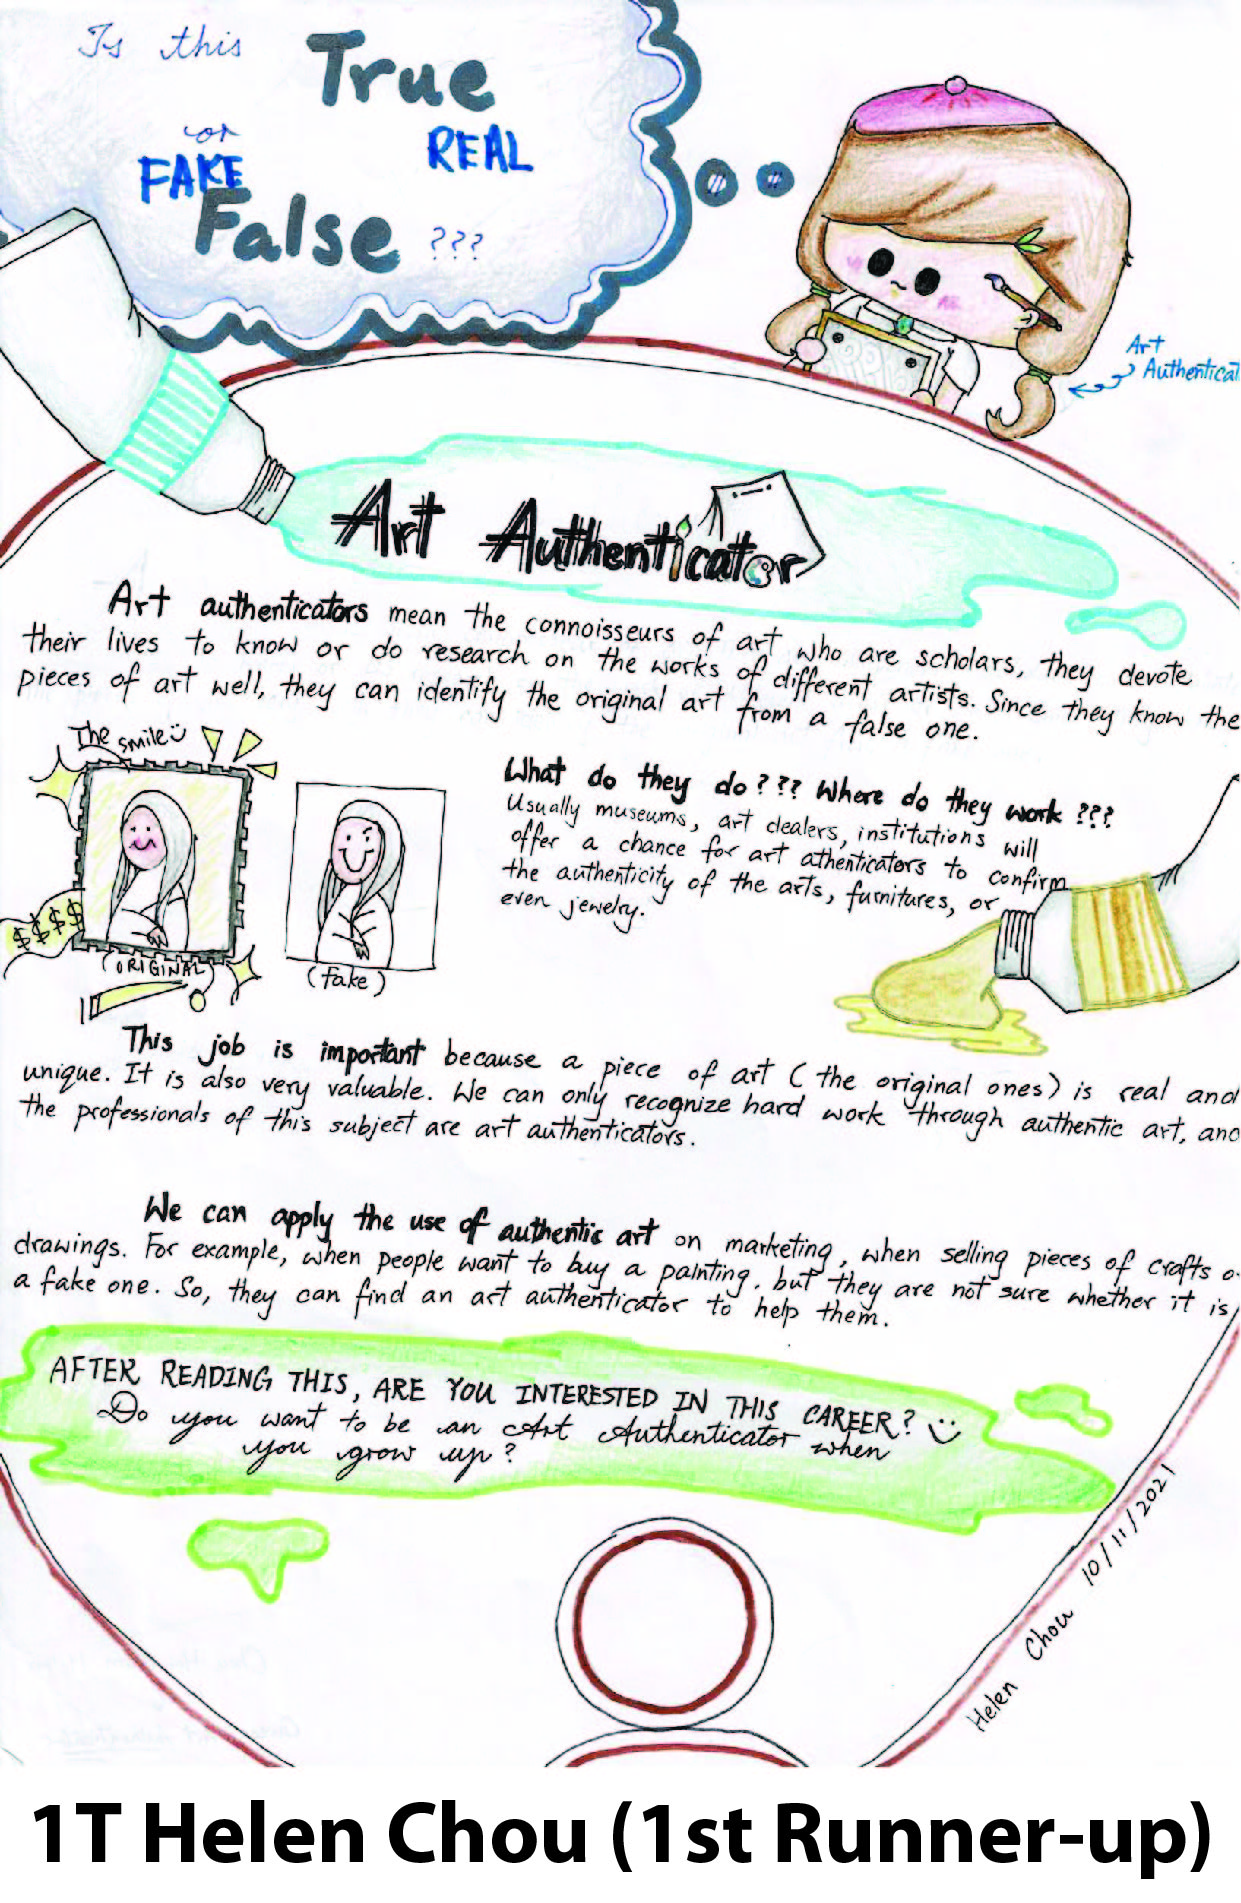 Is this True
or REAL
FAKE
False ???
Art
Authenticat
Art Authenticator
Art authenticators mean the connoisseurs of art who are scholars, they devote
their lives to know or do research on the works of different artists. Since they know the
pieces of art well, they can identify the original art from a false one.
The smile
$$$$
(ORIGINAL)
(fake)
What do they do??? Where do they work???
Usually museums, art dealers, institutions will
offer a chance for art athenticators to confirm
the authenticity of the arts, furnitures, or
even jewelry.
This job is important because a piece of art (the original ones) is real and
unique. It is also very valuable. We can only recognize hard work through authentic art, and
the professionals of this subject are art authenticators.
We can apply the use of authentic art on marketing, when selling pieces of crafts o
drawings. For example, when people want to buy a painting. but they are not sure whether it is
a fake one. So, they can find an art authenticator to help them.
AFTER READING THIS, ARE YOU INTERESTED IN THIS CAREER?
Do you want to be an Art Authenticator when
you grow up?
Helen Chou 10/11/2021
1T Helen Chou (1st Runner-up)